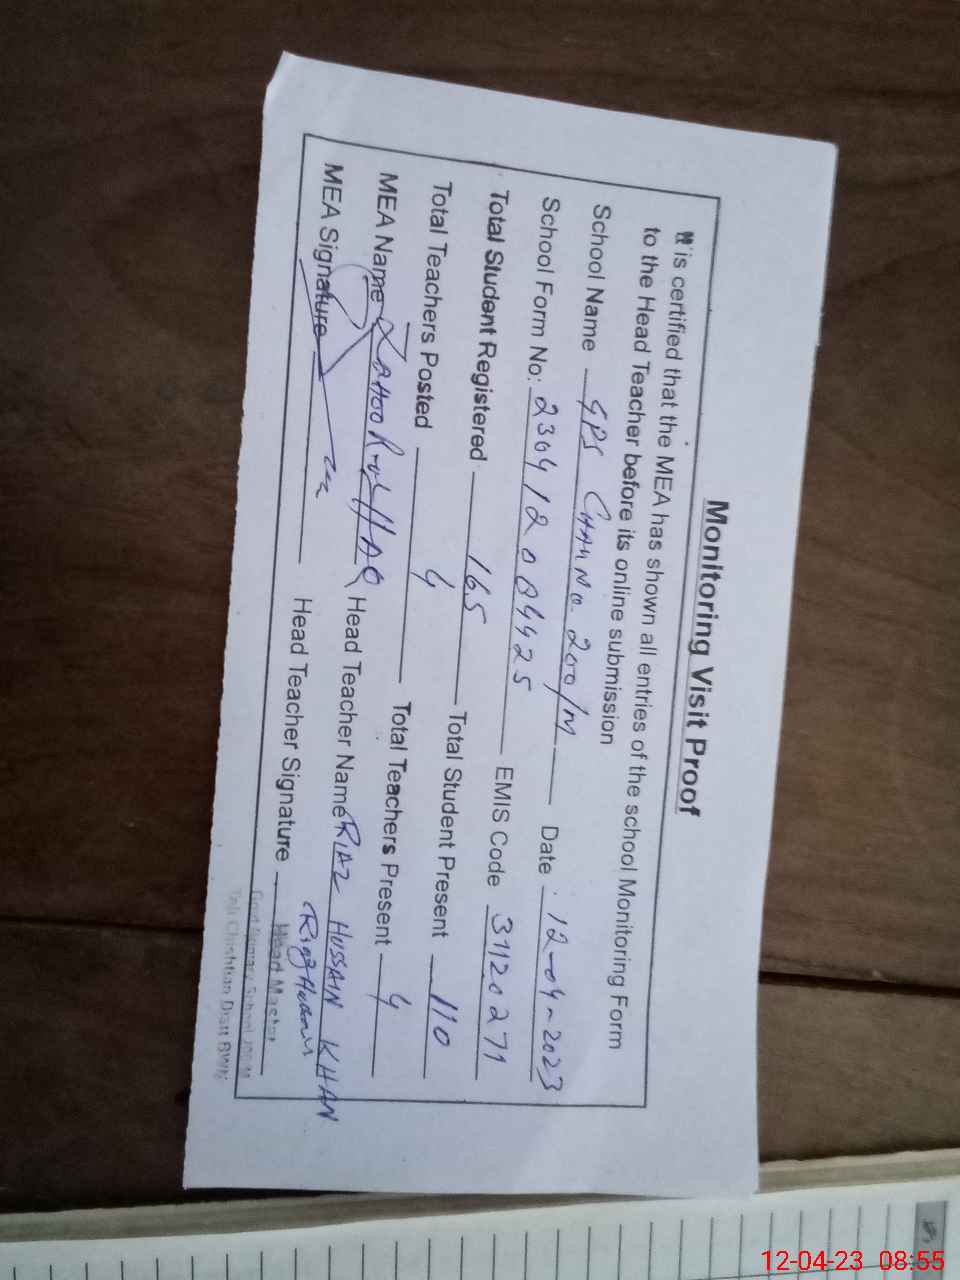 Monitoring Visit Proof
It is certified that the MEA has shown all entries of the school Monitoring Form
to the Head Teacher before its online submission
School Name GPS CHAK No. 200/M Date 12-04-2023
School Form No: 23041200A4425 EMIS Code 31120271
Total Student Registered 165 Total Student Present 110
Total Teachers Posted 4 Total Teachers Present 4
MEA Name ZAHOOR-ul-HAQ Head Teacher Name RIAZ HUSSAIN KHAN
MEA Signature Head Teacher Signature Riaz Hussain
Head Master
Govt Primary School 200/M
Teh Chishtian Distt BWN
12-04-23 08:55